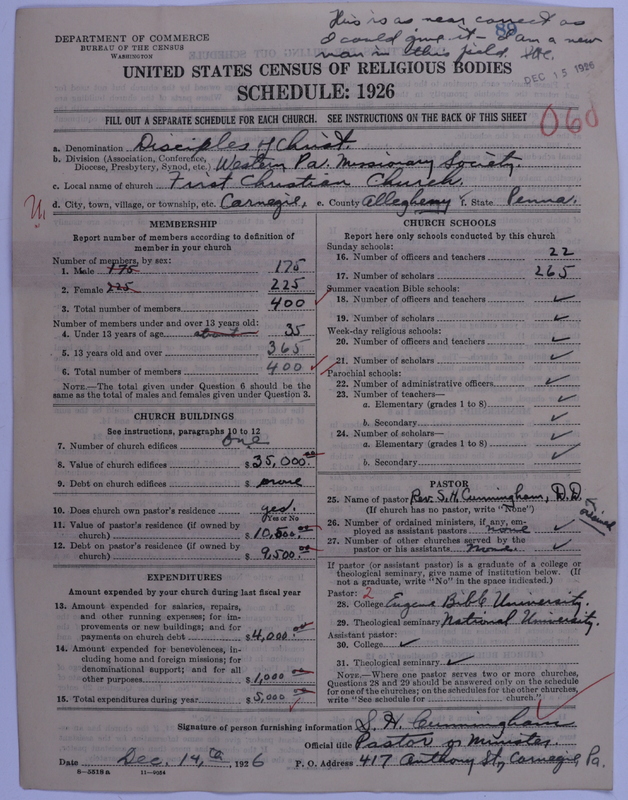 This is as near correct as
I could give it - I am a new
man in this field. SHC.
89
DEPARTMENT OF COMMERCE
BUREAU OF THE CENSUS
WASHINGTON
DEC 15 1926
UNITED STATES CENSUS OF RELIGIOUS BODIES
SCHEDULE: 1926
FILL OUT A SEPARATE SCHEDULE FOR EACH CHURCH. SEE INSTRUCTIONS ON THE BACK OF THIS SHEET
06d
a. Denomination Disciples of Christ.
b. Division (Association, Conference, Diocese, Presbytery, Synod, etc.) Western Pa. Missionary Society.
c. Local name of church First Christian Church.
d. City, town, village, or township, etc. Carnegie, e. County Allegheny f. State Penna.
MEMBERSHIP
Report number of members according to definition of
member in your church
Number of members, by sex:
1. Male 175 175
2. Female 225 225
3. Total number of members 400
Number of members under and over 13 years old:
4. Under 13 years of age about 35
5. 13 years old and over 365
6. Total number of members 400
NOTE.—The total given under Question 6 should be the
same as the total of males and females given under Question 3.
CHURCH BUILDINGS
See instructions, paragraphs 10 to 12
7. Number of church edifices one
8. Value of church edifices $ 35,000.00
9. Debt on church edifices $ none
10. Does church own pastor's residence yes.
Yes or No
11. Value of pastor's residence (if owned by
church) $ 10,500.00
12. Debt on pastor's residence (if owned by
church) $ 9,500.00
EXPENDITURES
Amount expended by your church during last fiscal year
13. Amount expended for salaries, repairs,
and other running expenses; for im-
provements or new buildings; and for
payments on church debt $ 4,000.00
14. Amount expended for benevolences, in-
cluding home and foreign missions; for
denominational support; and for all
other purposes $ 1,000.00
15. Total expenditures during year $ 5,000.00
CHURCH SCHOOLS
Report here only schools conducted by this church
Sunday schools:
16. Number of officers and teachers 22
17. Number of scholars 265
Summer vacation Bible schools:
18. Number of officers and teachers ✓
19. Number of scholars ✓
Week-day religious schools:
20. Number of officers and teachers ✓
21. Number of scholars ✓
Parochial schools:
22. Number of administrative officers ✓
23. Number of teachers—
a. Elementary (grades 1 to 8) ✓
b. Secondary ✓
24. Number of scholars—
a. Elementary (grades 1 to 8) ✓
b. Secondary ✓
PASTOR
25. Name of pastor Rev. S. H. Cunningham, D.D.
(If church has no pastor, write "None")
26. Number of ordained ministers, if any, em-
ployed as assistant pastors none ✓
27. Number of other churches served by the
pastor or his assistants None. ✓
If pastor (or assistant pastor) is a graduate of a college or
theological seminary, give name of institution below. (If
not a graduate, write "No" in the space indicated.)
Pastor: 2
28. College Eugene Bible University.
29. Theological seminary National University.
Assistant pastor:
30. College ✓
31. Theological seminary ✓
NOTE.—Where one pastor serves two or more churches,
Questions 28 and 29 should be answered only on the schedule
for one of the churches; on the schedules for the other churches,
write "See schedule for ........ church."
Signature of person furnishing information S. H. Cunningham
Official title Pastor or Minister.
Date Dec. 14,th, 1926 P. O. Address 417 Anthony St, Carnegie, Pa.
8-5518a 11-9054